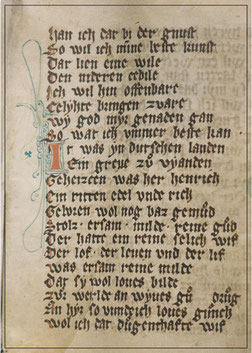 Han ich dar bi der gunst
So wil ich mine beste kunst
Dar lien eine wile
Den mideren to deile
Ich wil hin offenbare
To lyhte bringen zware
Wy god myr genaden gan
So war ich ymmer beste kan
Ir was yn dutschen landen
Ein greue zu vyanden
Geheizeen was her henrich
Ein ritter edel unde rich
Geboren wol noch baz gemud
Stolz ersam milde reine gud
Der hatte ein reine selich wif
Der lof der leuen und der lif
Was ersam reine milde
Daz sy wol loues bilde
Zur werlde an wyues gu drug
An hyr so vundich loues gnuch
Wol ich daz dugenthafte wif